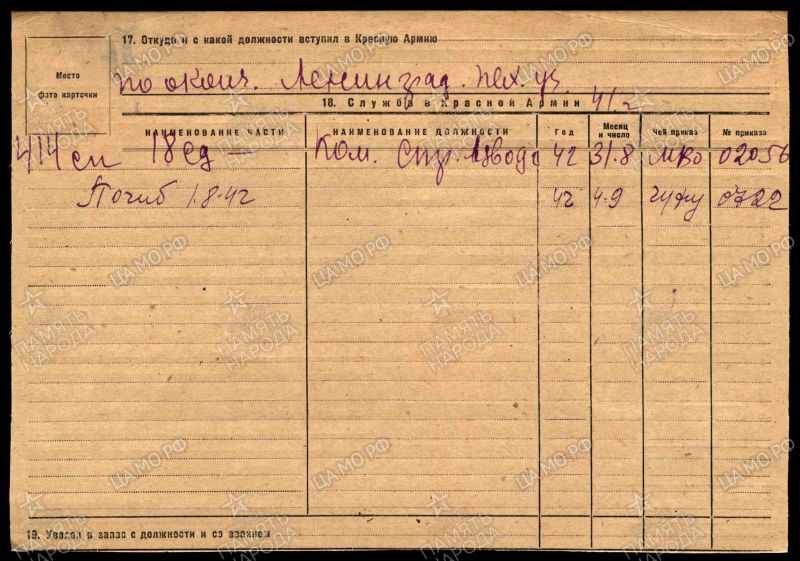 17. Откуда и с какой должности вступил в Красную Армию
Место
фото карточки
по оконч. Ленинград. пех. уч.
18. Служба в Красной Армии 41 г
НАИМЕНОВАНИЕ ЧАСТИ НАИМЕНОВАНИЕ ДОЛЖНОСТИ Год Месяц и число Чей приказ № приказа
414 сп 18 сд — Ком. Стр. взвода 42 31.8 МВО 02056
Погиб 1.8.42 42 4.9 гуфу 0722
19. Уволен в запас с должности и со званием
ЦАМО.РФ
ПАМЯТЬ НАРОДА